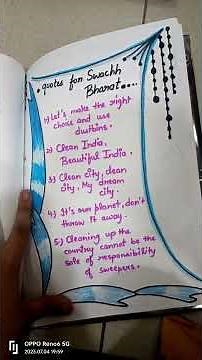 quotes for Swachh
Bharat....
1) Let's make the right
choice and use
dustbins.
2) Clean India,
Beautiful India.
3) Clean city, clean
city, My dream
city.
4) It's our planet, don't
throw it away.
5) Cleaning up the
country cannot be the
sole of responsibility
of sweepers.
OPPO Reno6 5G
2023.07.04 19:59